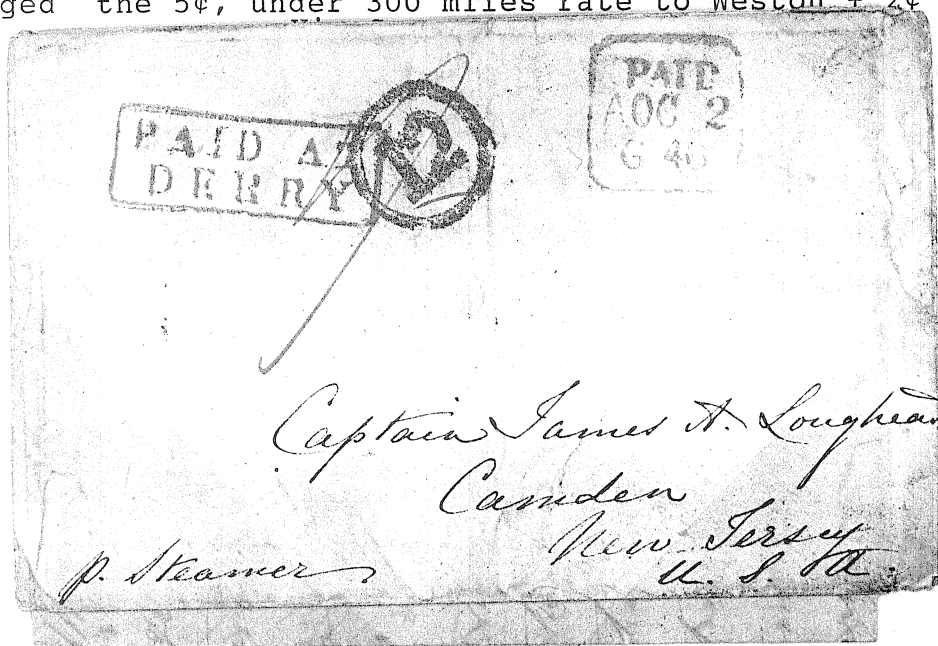 ged the 5¢, under 300 miles rate to Weston + 2¢
PAID AT
DERRY
12
PAID
AUG 2
Captain James A. Loughead
Camden
New Jersey
U. S. A.
p. Steamer